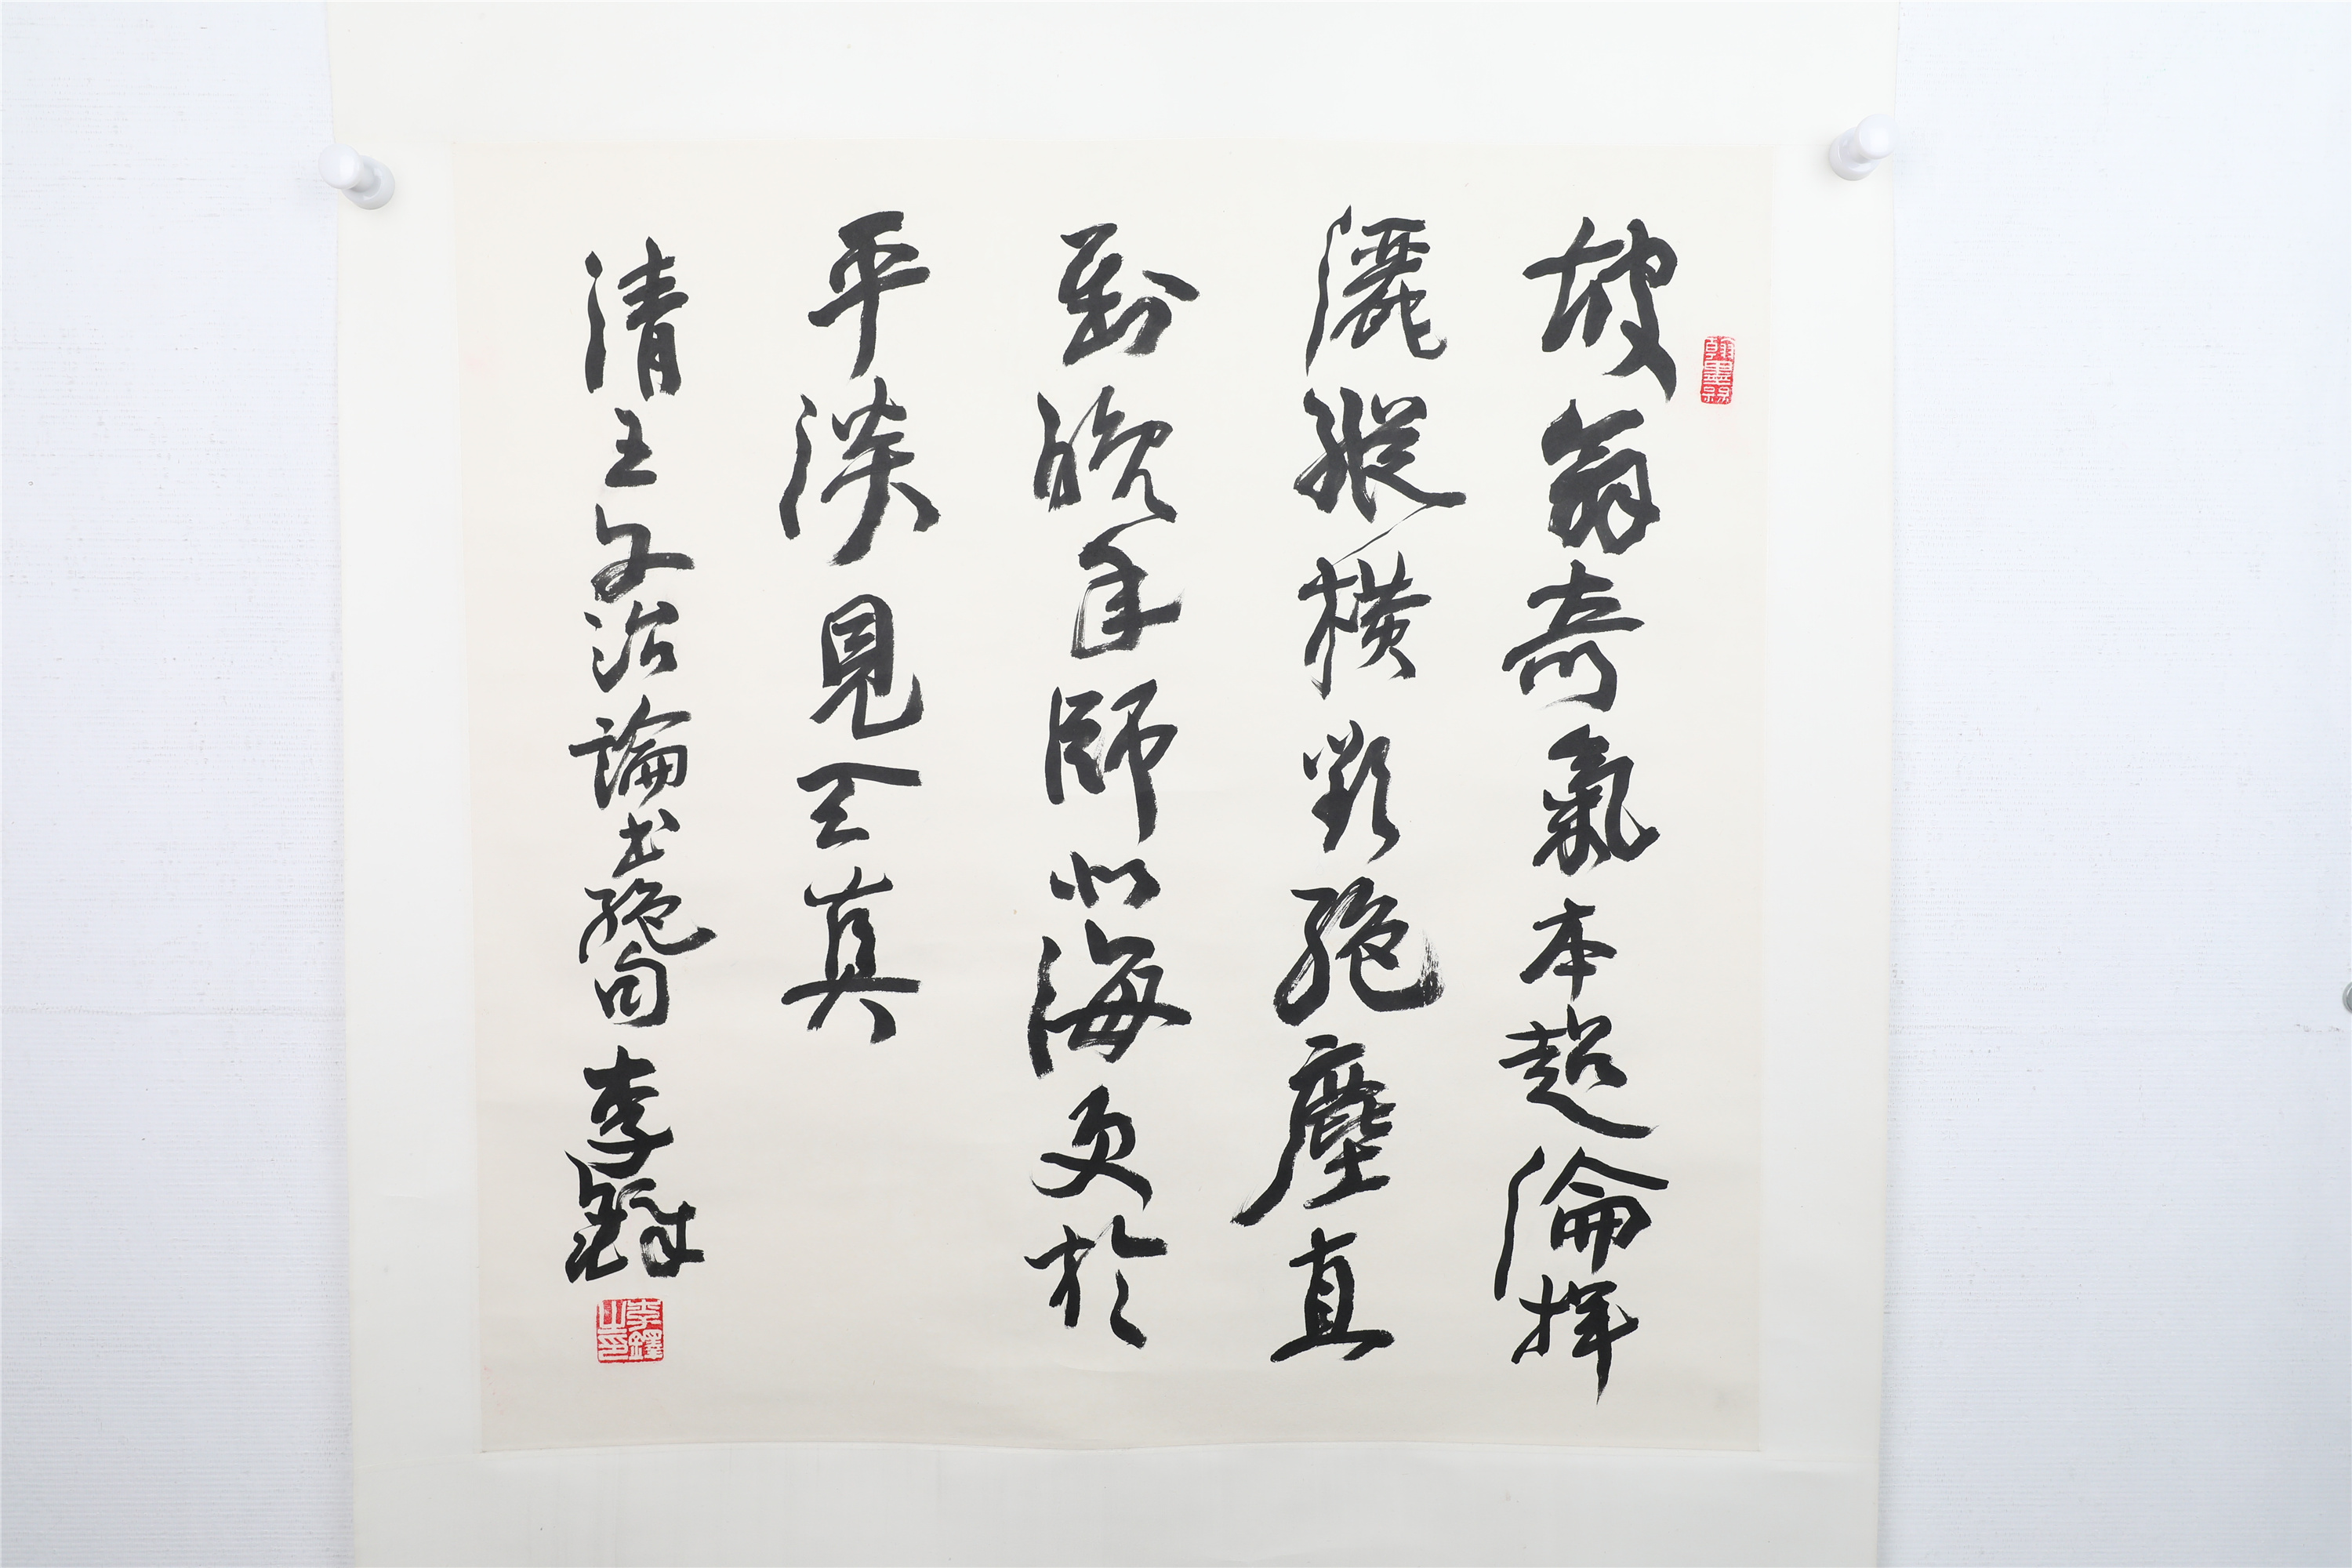 坡翁奇氣本超倫揮
灑縱橫欲絕塵直
到晚年師北海更於
平淡見天真
清王文治論書絕句 李鐸
翰墨緣
李鐸之印